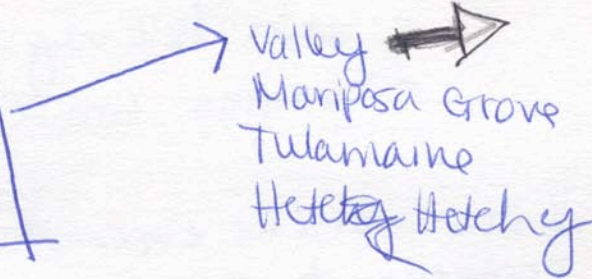 Valley
Mariposa Grove
Tulamaine
Hetchy